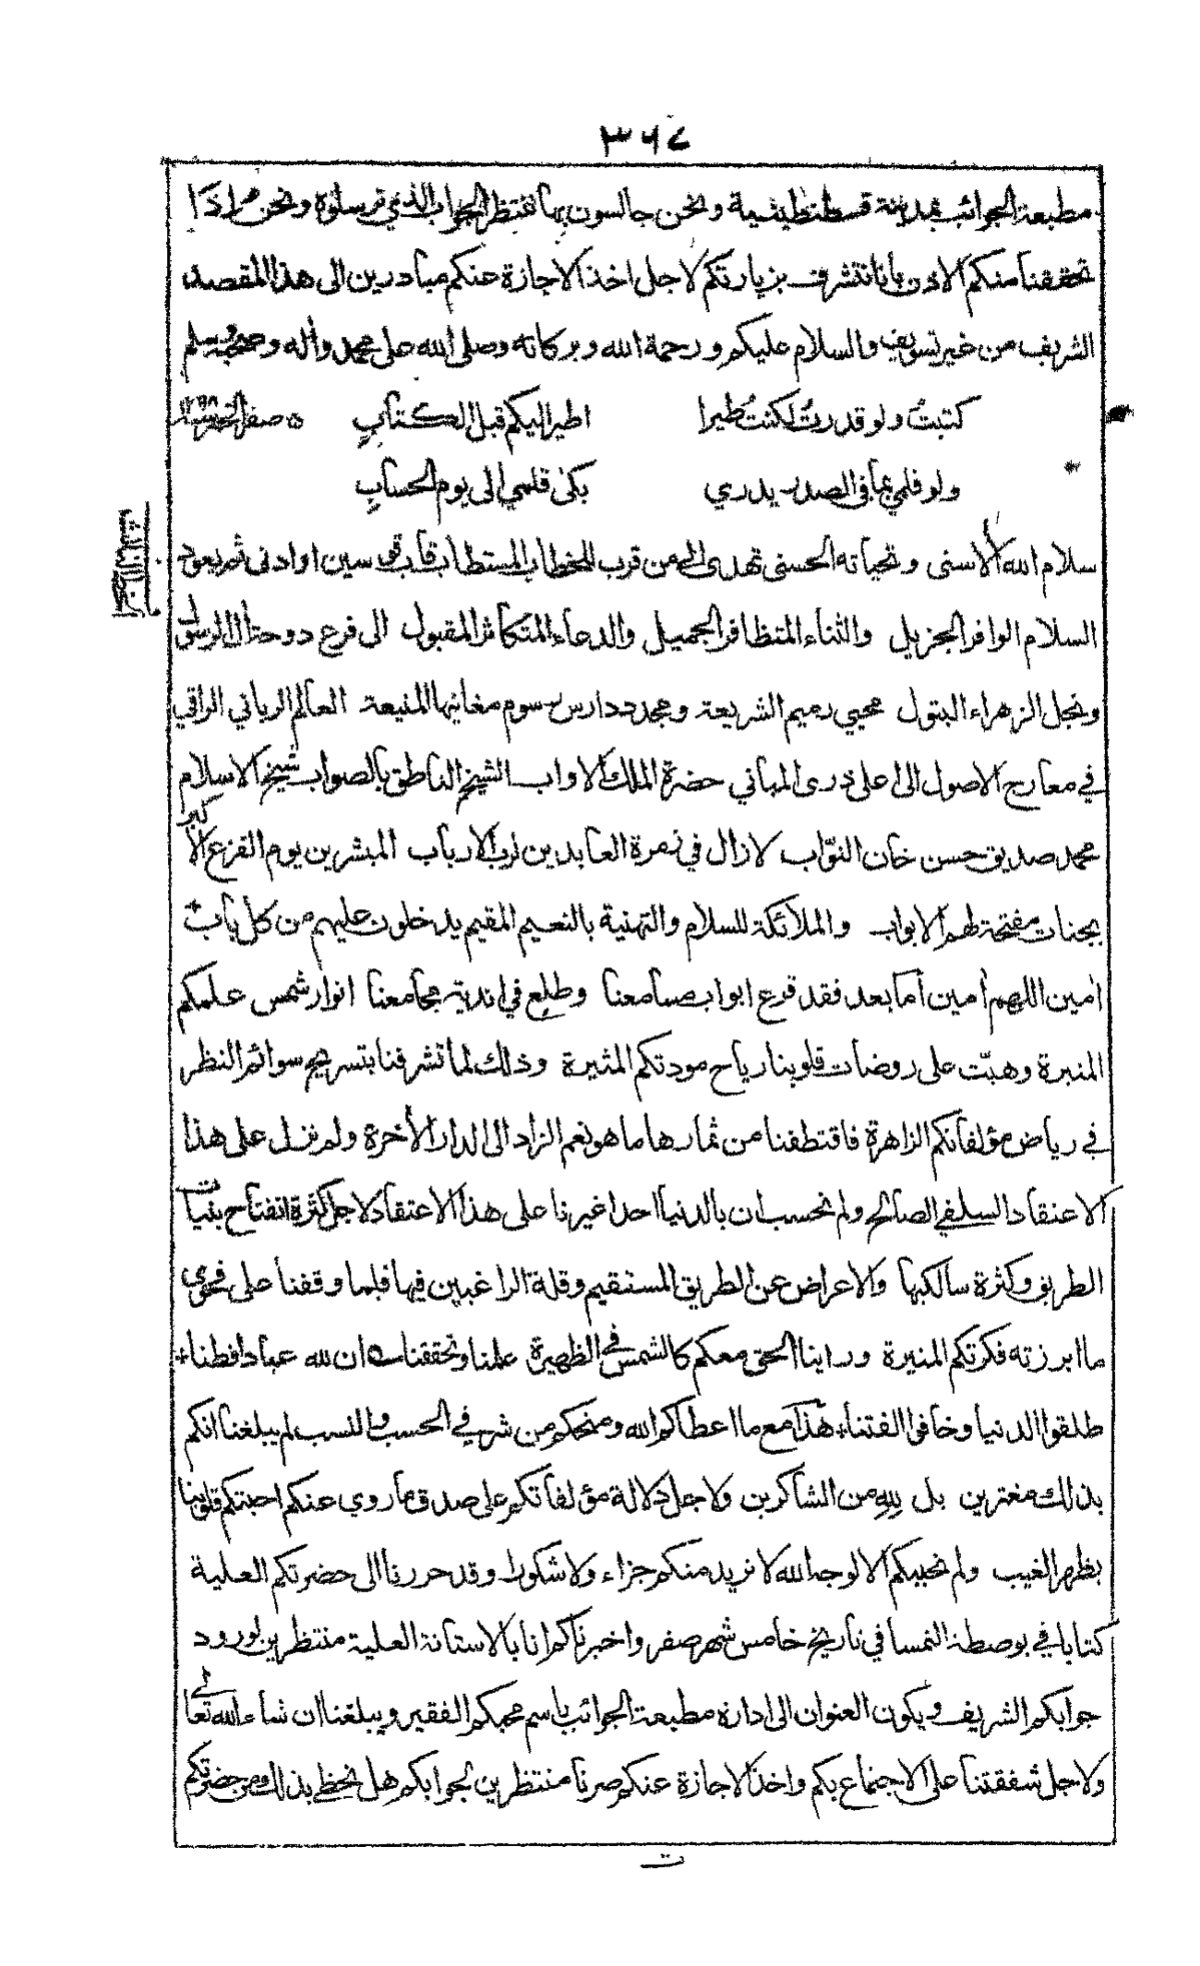 ٣٦٧
مطبعة الجوائب بمدينة قسطنطينية ونحن جالسون بها ننتظر الجواب الذي ترسلوه ونحن مرادنا
تحققنا منكم الاذن باننا نتشرف بزيارتكم لاجل اخذ الاجازة عنكم مبادرين الى هذا المقصد
الشريف من غير تسويف والسلام عليكم ورحمة الله وبركاته وصلى الله على محمد وأله وصحبه وسلم
كتبتُ ولو قدرتُ لكنتُ طيرا اطير اليكم قبل الكتابِ ٥ صفر الخير ١٢٩٨
ولو قلمي بما فى الصدر يدري بكى قلمي الى يوم الحسابِ
الخط الثالث
سلام الله الأسنى وتحياته الحسنى تهدى الى من قرب للخطاب المستطاب قاب قوسين او ادنى ثم يعود
السلام الوافر الجزيل والثناء المتظافر الجميل والدعاء المتكاثر المقبول الى فرع دوحة أل الرسول
ونجل الزهراء البتول محيي رميم الشريعة ومجدد دارس رسوم مغانيها المنيعة العالم الرباني الراقي
في معارج الاصول الى اعلى ذرى المباني حضرة الملك الاواب الشيخ الناطق بالصواب شيخ الاسلام
محمد صديق حسن خان النوّاب لازال في زمرة العابدين لرب الارباب المبشرين يوم الفزع الأكبر
بجنات مفتحة لهم الابواب والملائكة للسلام والتهنية بالنعيم المقيم يدخلون عليهم من كل باب
أمين اللهم أمين أما بعد فقد قرع ابواب مسامعنا وطلع في اندية مجامعنا انوار شمس علمكم
المنيرة وهبّت على روضات قلوبنا رياح مودتكم المثيرة وذلك لما تشرفنا بتسريح سوائم النظر
في رياض مؤلفاتكم الزاهرة فاقتطفنا من ثمارها ما هو نعم الزاد الى الدار الأخرة ولم نزل على هذا
الاعتقاد السلفي الصالح ولم نحسب ان بالدنيا احدا غيرنا على هذا الاعتقاد لاجل كثرة انفتاح بنيات
الطريق وكثرة سالكيها والاعراض عن الطريق المستقيم وقلة الراغبين فيها فلما وقفنا على فحوى
ما ابرزته فكرتكم المنيرة وراينا الحق معكم كالشمس في الظهيرة علمنا وتحققنا ان لله عبادا فطنا
طلقوا الدنيا وخافوا الفتنا هذا مع ما اعطاكم الله ومنحكم من شرف في الحسب والنسب لم يبلغنا انكم
بذلك مغترين بل للهِ من الشاكرين ولاجل دلالة مؤلفاتكم على صدق ما روي عنكم احبتكم قلوبنا
بظهر الغيب ولم نحببكم الا لوجه الله لا نريد منكم جزاء ولا شكورا وقد حررنا الى حضرتكم العلية
كتابا في بوصطة النمسا في تاريخ خامس شهر صفر واخبرناكم اننا بالاستانة العلية منتظرين لورود
جوابكم الشريف ويكون العنوان الى ادارة مطبعة الجوائب باسم محبكم الفقير ويبلغنا ان شاء الله تعالى
ولاجل شفقتنا على الاجتماع بكم واخذ الاجازة عنكم صرنا منتظرين لجوابكم هل نحظى بذلك من حضرتكم
ت